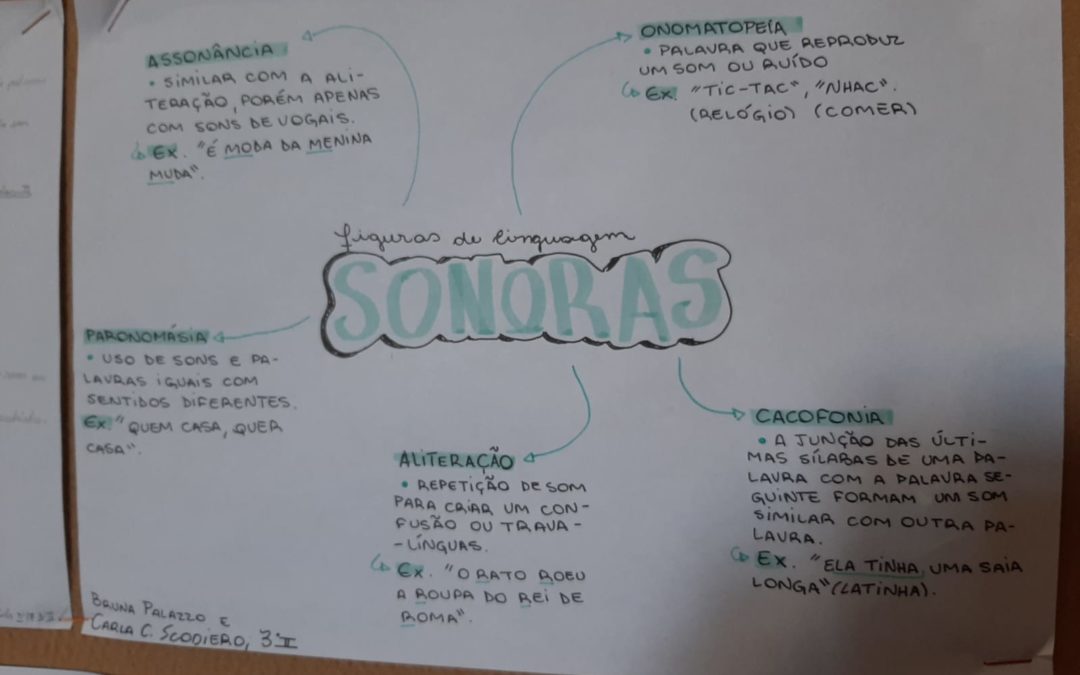 ASSONÂNCIA
• SIMILAR COM A ALI-
TERAÇÃO, PORÉM APENAS
COM SONS DE VOGAIS.
Ex. "É MODA DA MENINA
MUDA".
ONOMATOPEÍA
• PALAVRA QUE REPRODUZ
UM SOM OU RUÍDO
Ex. "TIC-TAC", "NHAC".
(RELÓGIO) (COMER)
figuras de linguagem
SONORAS
PARONOMÁSIA
• USO DE SONS E PA-
LAVRAS IGUAIS COM
SENTIDOS DIFERENTES.
Ex. "QUEM CASA, QUER
CASA".
ALITERAÇÃO
• REPETIÇÃO DE SOM
PARA CRIAR UM CON-
FUSÃO OU TRAVA-
-LÍNGUAS.
Ex. "O RATO ROEU
A ROUPA DO REI DE
ROMA".
CACOFONIA
• A JUNÇÃO DAS ÚLTI-
MAS SÍLABAS DE UMA PA-
LAVRA COM A PALAVRA SE-
GUINTE FORMAM UM SOM
SIMILAR COM OUTRA PA-
LAVRA.
Ex. "ELA TINHA UMA SAIA
LONGA" (LATINHA).
BRUNA PALAZZO E
CARLA C. SCODIERO, 3ºI